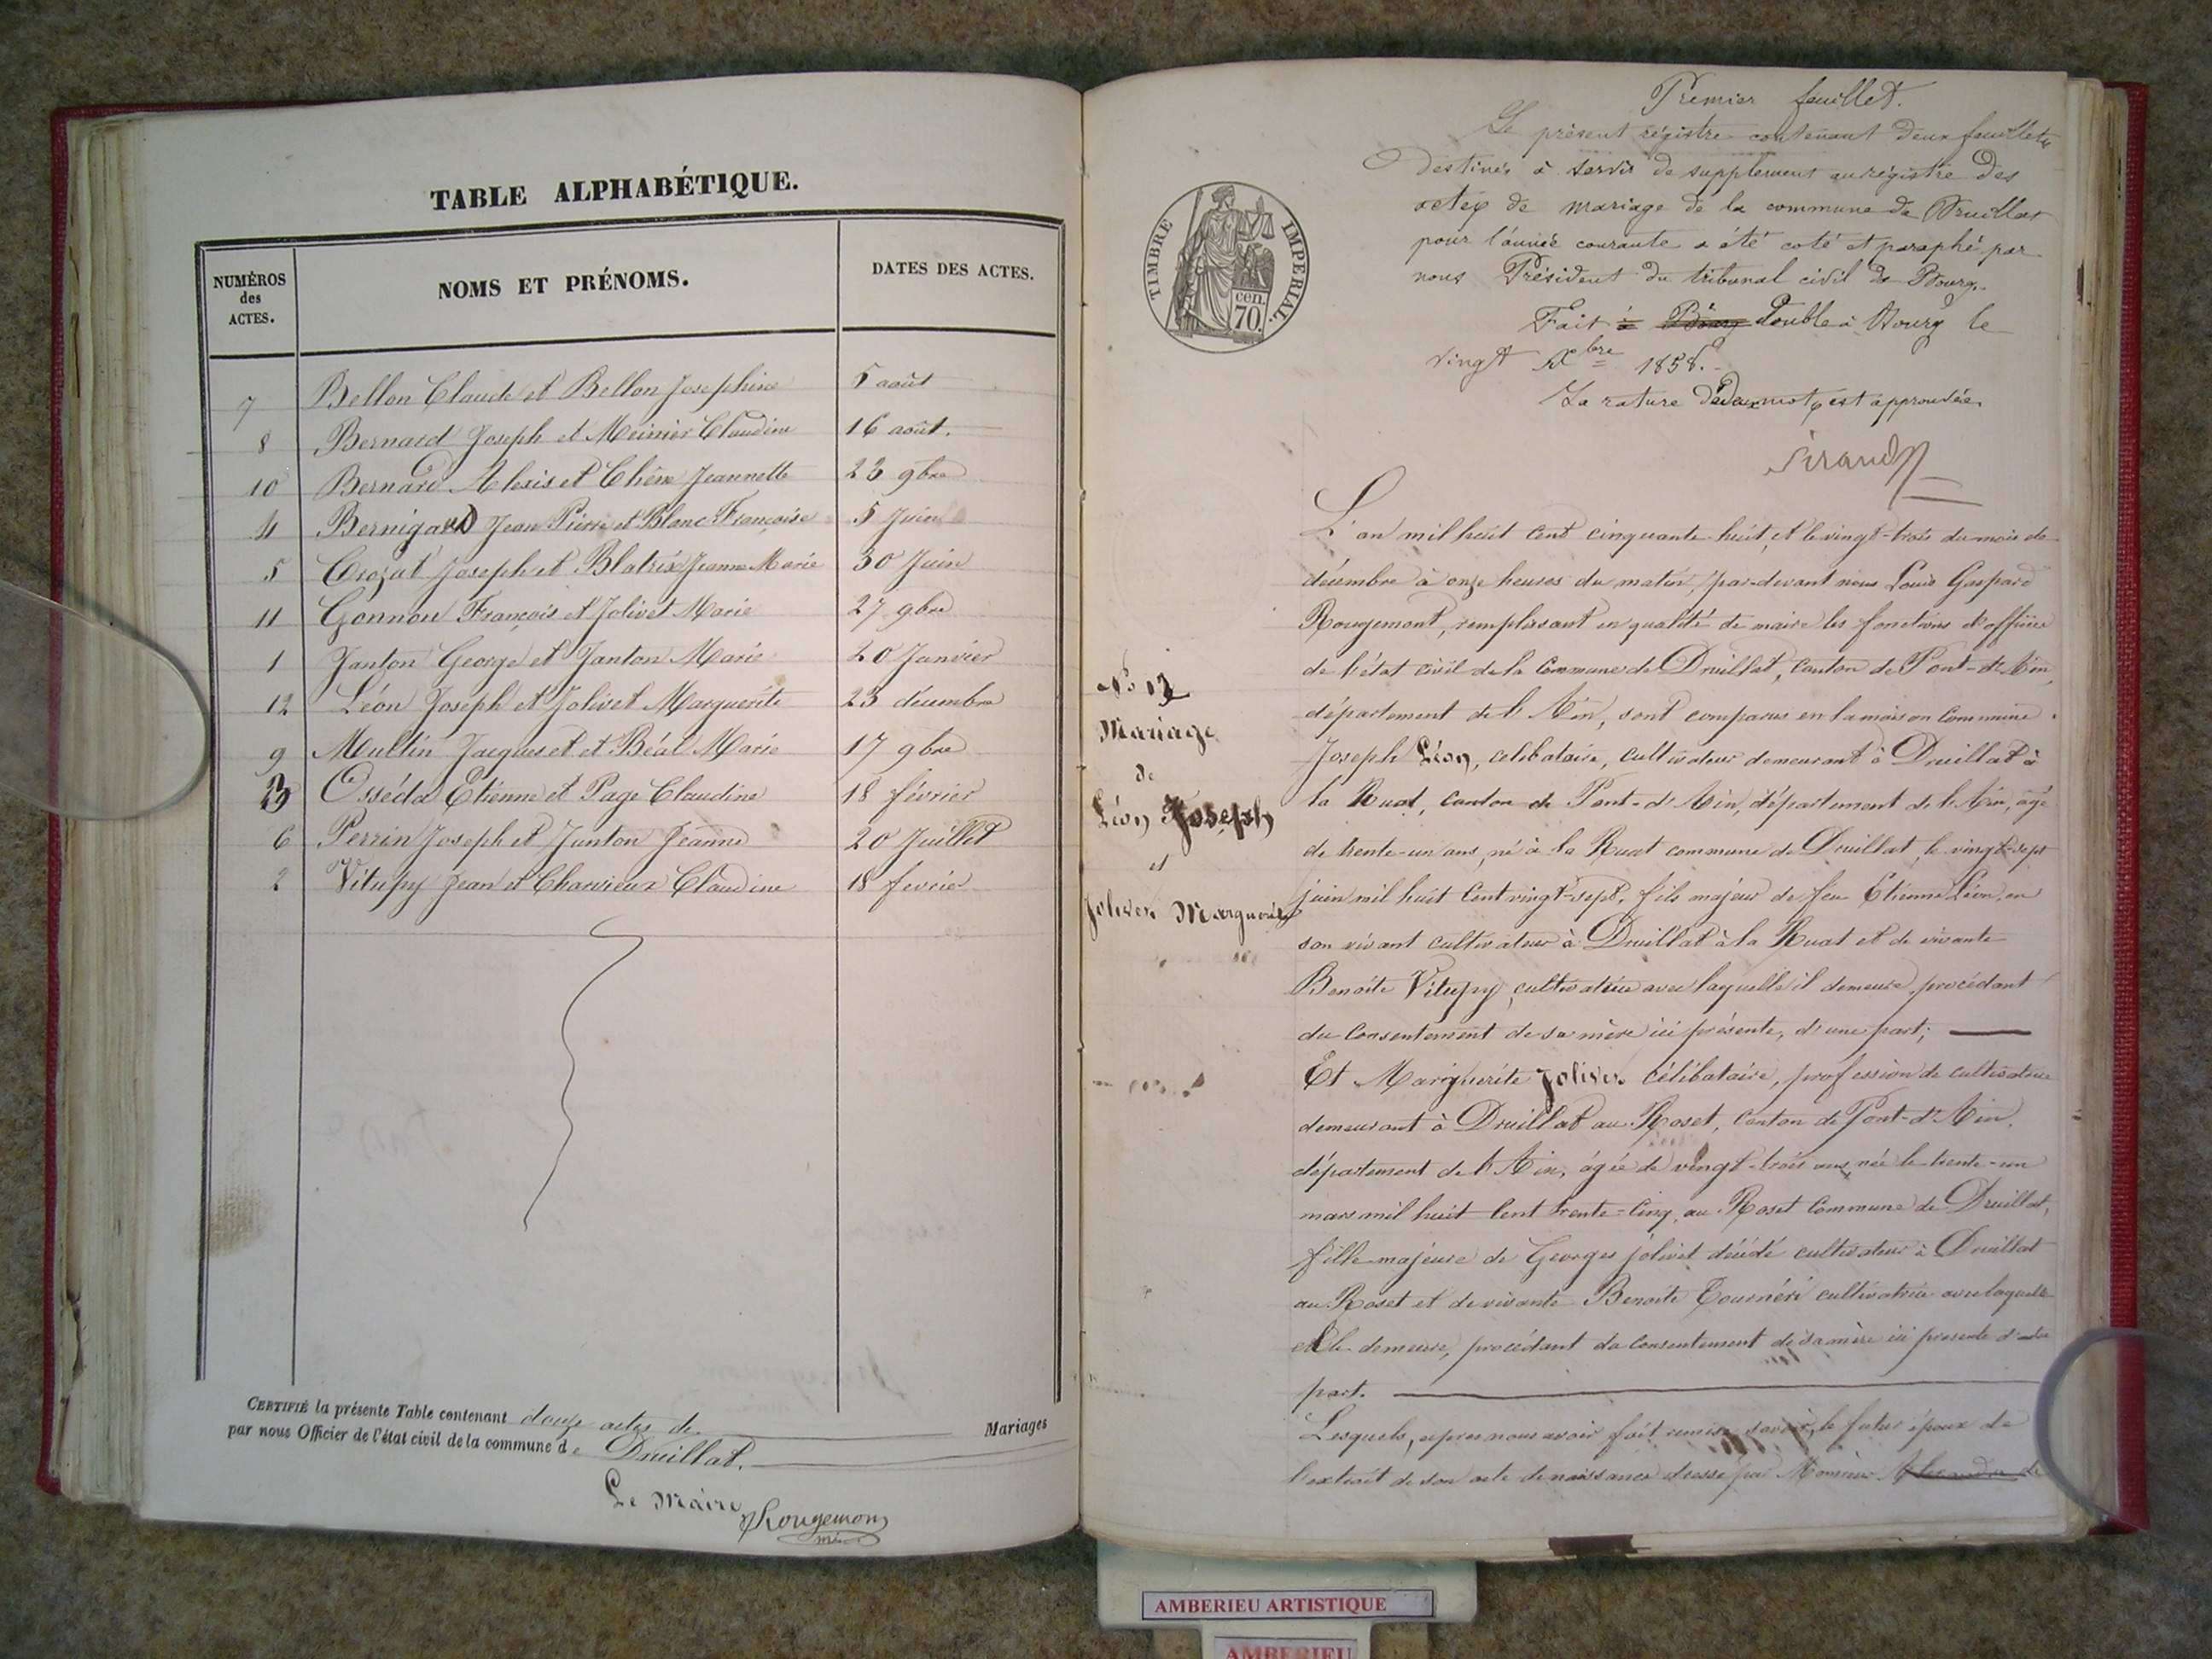 TABLE ALPHABÉTIQUE.
NUMÉROS des ACTES.
NOMS ET PRÉNOMS.
DATES DES ACTES.
7 Bellon Claude et Bellon Josephine 5 août
8 Bernard Joseph et Meinier Claudine 16 août.
10 Bernard Alexis et Chêne Jeannette 23 9bre
4 Bernigard Jean Pierre et Blanc Françoise 5 Juin
5 Crozat Joseph et Blatrix Jeanne Marie 30 Juin
11 Gonnon François et Jolivet Marie 27 9bre
1 Janton George et Janton Marie 20 Janvier
12 Léon Joseph et Jolivet Marguerite 23 décembre
9 Multin Jacques et Béal Marie 17 9bre
3 Osséda Etienne et Page Claudine 18 février
6 Perrin Joseph et Janton Jeanne 20 Juillet
2 Vitupy Jean et Charvieux Claudine 18 fevrier
CERTIFIÉ la présente Table contenant douze actes de Mariages
par nous Officier de l'état civil de la commune de Druillat.
Le Maire
Rougemont
Premier feuillet.
Le présent régistre contenant deux feuillets
destinés à servir de supplement au régistre des
actes de mariage de la commune de Druillat
pour l'année courante a été coté et paraphé par
nous Président du tribunal civil de Bourg.
Fait à Bourg double à Bourg le
vingt Xbre 1858.
La rature de deux mots est approuvée
TIMBRE IMPERIAL.
cen.
70.
L'an mil huit cent cinquante-huit, et le vingt-trois du mois de
décembre à onze heures du matin, par-devant nous Louis Gaspard
Rougemont, remplissant en qualité de maire les fonctions d'officier
de l'état civil de la Commune de Druillat, canton de Pont-d'Ain,
département de l'Ain, sont comparus en la maison Commune
N° 12
Mariage
de
Léon Joseph
et
Jolivet Marguerite
Joseph Léon, célibataire, cultivateur demeurant à Druillat à
la Ruat, canton de Pont-d'Ain, département de l'Ain, âgé
de trente-un ans, né à la Ruat commune de Druillat, le vingt-sept
juin mil huit cent vingt-sept, fils majeur de feu Etienne Léon, en
son vivant cultivateur à Druillat à la Ruat et de vivante
Benoite Vitupy, cultivatrice avec laquelle il demeure, procédant
du Consentement de sa mère ici présente, d'une part;
Et Marguerite Jolivet célibataire, profession de cultivatrice
demeurant à Druillat au Roset, Canton de Pont-d'Ain,
département de l'Ain, âgée de vingt-trois ans, née le trente-un
mars mil huit cent trente-cinq, au Roset Commune de Druillat,
fille majeure de Georges Jolivet décédé cultivateur à Druillat
au Roset et de vivante Benoite Tournéri cultivatrice avec laquelle
elle demeure, procédant du Consentement de sa mère ici presente d'autre
part.
Lesquels, apres nous avoir fait remise, savoir, le futur époux de
l'extrait de son acte de naissance dressé par Monsieur de
AMBERIEU ARTISTIQUE
AMBERIEU